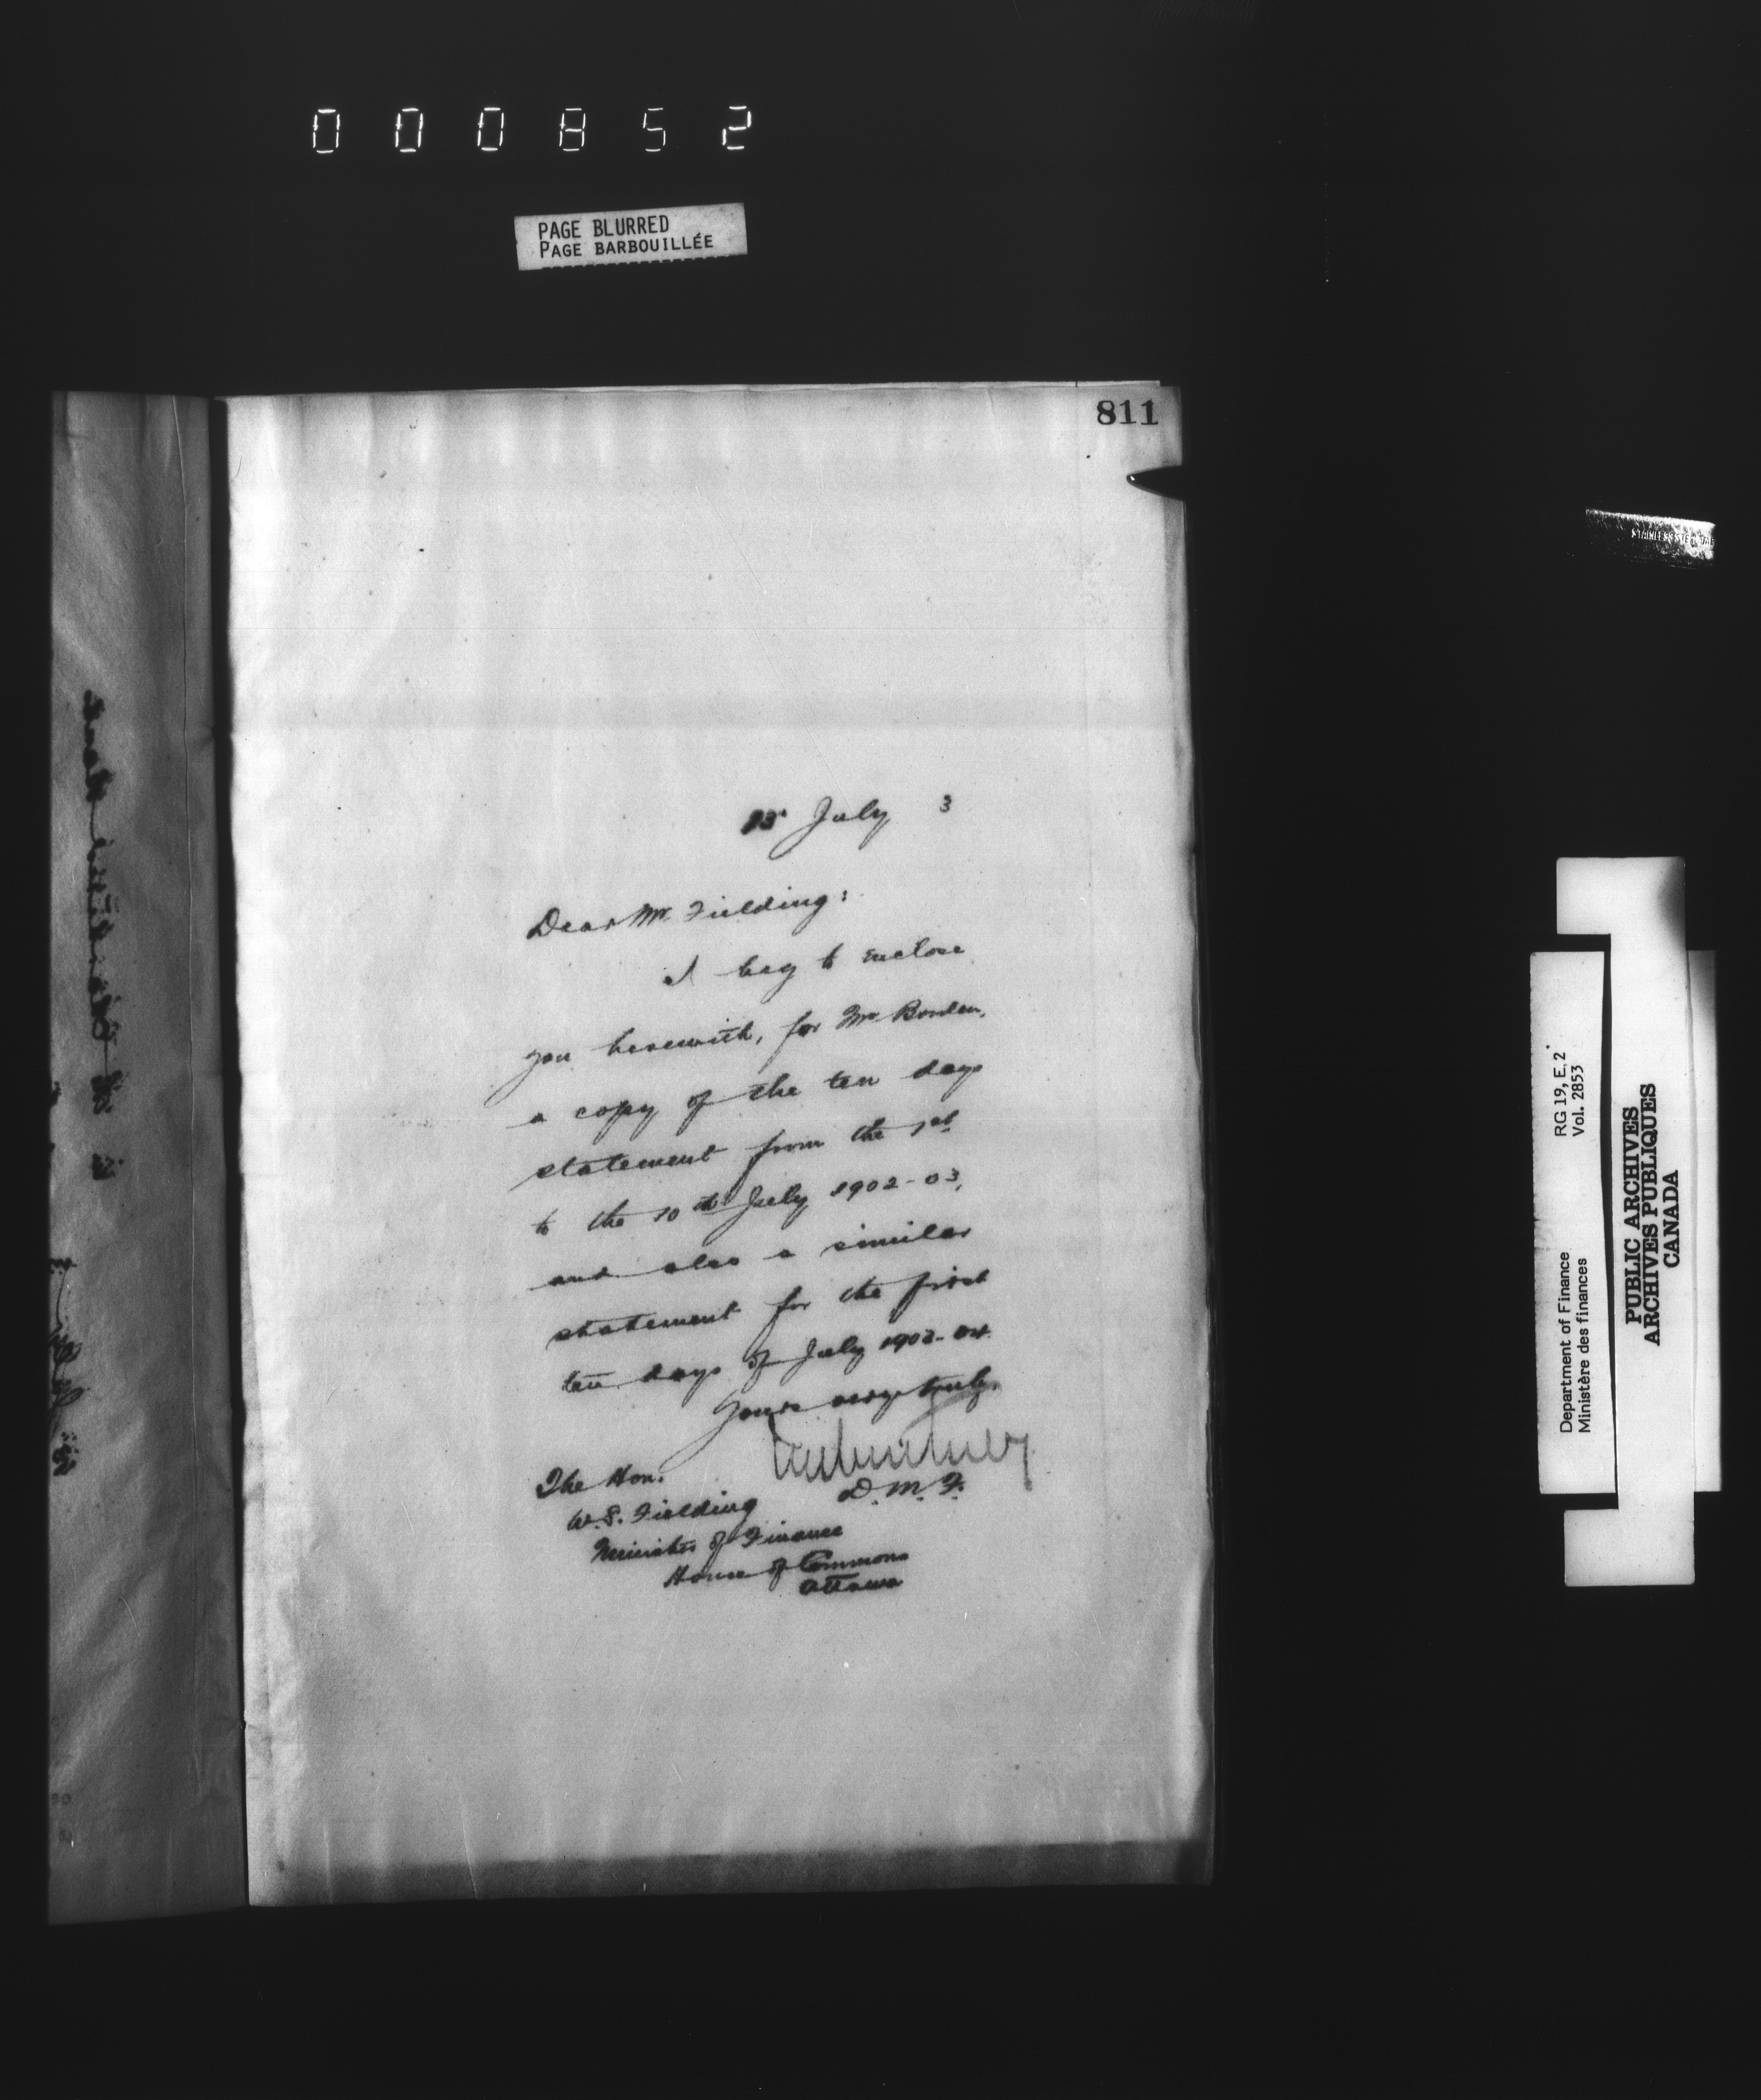 000852
PAGE BLURRED
PAGE BARBOUILLÉE
811
15 July 3
Dear Mr. Fielding:
I beg to enclose
you herewith, for Mr Borden,
a copy of the ten days
statement from the 1st
to the 10th July 1902-03,
and also a similar
statement for the first
ten days of July 1903-04.
Yours very truly,
D. M. F.
The Hon.
W. S. Fielding
Minister of Finance
House of Commons
Ottawa
Department of Finance RG 19, E.2
Ministère des finances Vol. 2853
PUBLIC ARCHIVES
ARCHIVES PUBLIQUES
CANADA